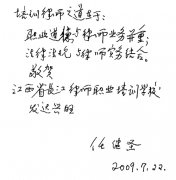 培训律师之道在于:
职业道德与律师业务并重,
法律法规与律师实务结合。
敬贺
江西省长江律师职业培训学校
发达兴旺
任健圣
2009.7.22.